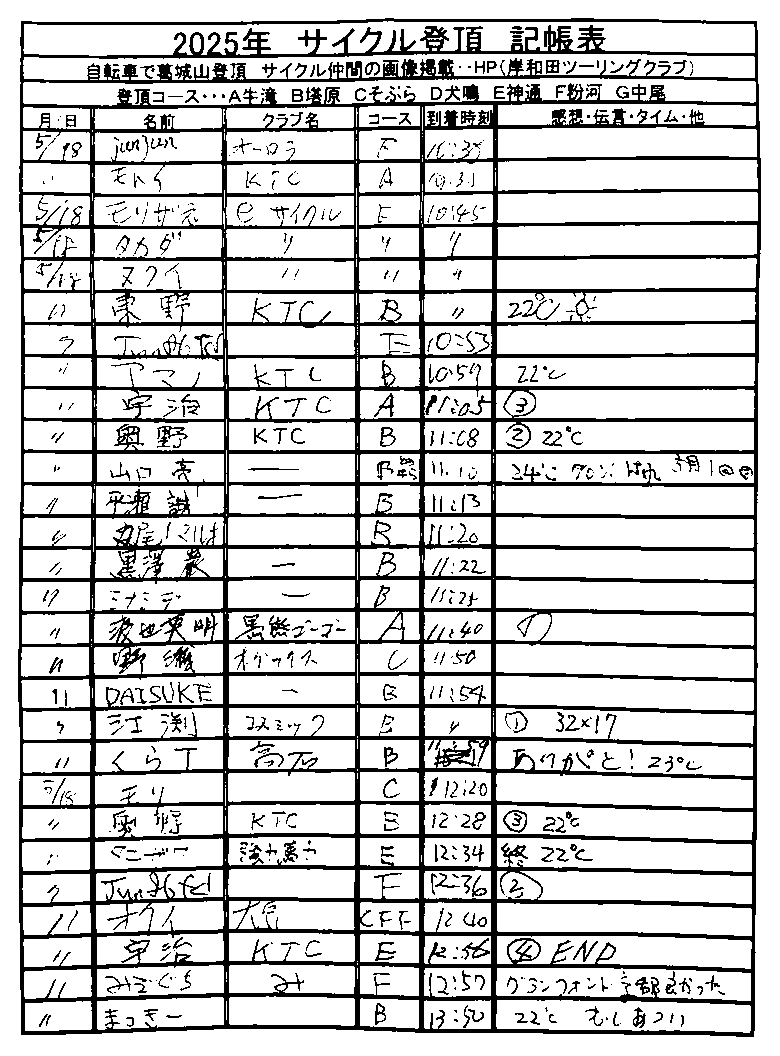 2025年 サイクル登頂 記帳表
自転車で葛城山登頂 サイクル仲間の画像掲載‥HP(岸和田ツーリングクラブ)
登頂コース・・・A牛滝 B塔原 Cそぶら D犬鳴 E神通 F粉河 G中尾
月/日 名前 クラブ名 コース 到着時刻 感想・伝言・タイム・他
5/18 junjun オーロラ F
〃 モトイ KTC A 10:31
5/18 モリザネ e サイクル F 10:45
5/18 タカダ 〃 〃 〃
5/18 ヌクイ 〃 〃 〃
〃 東野 KTC B 〃 22℃
〃 E 10:53
〃 アマノ KTC B 10:59 22℃
〃 宇治 KTC A 11:05 ③
〃 奥野 KTC B 11:08 ② 22℃
〃 山口 亮 ー 11:10 24℃ 70% はれ
〃 平瀬 誠 ー B 11:13
〃 11:20
〃 黒澤 ー B 11:22
〃 ミナミデ ー B
〃 黒熊ゴーゴー A 11:40
〃 野 C 11:50
〃 DAISUKE ー B 11:54
〃 江渕 コスミック B 〃 ① 32×17
〃 くらT 高石 B ありがと! 23℃
5/18 モリ C 12:20
〃 奥野 KTC B 12:28 ③ 22℃
〃 強力馬力 E 12:34 終 22℃
〃 F 12:36 ②
〃 オクイ CFF 12:40
〃 宇治 KTC E 12:56 ④ END
〃 みぞぐち み F 12:57 グランフォンド京都良かった
〃 まっきー B 13:50 22℃ むしあつい